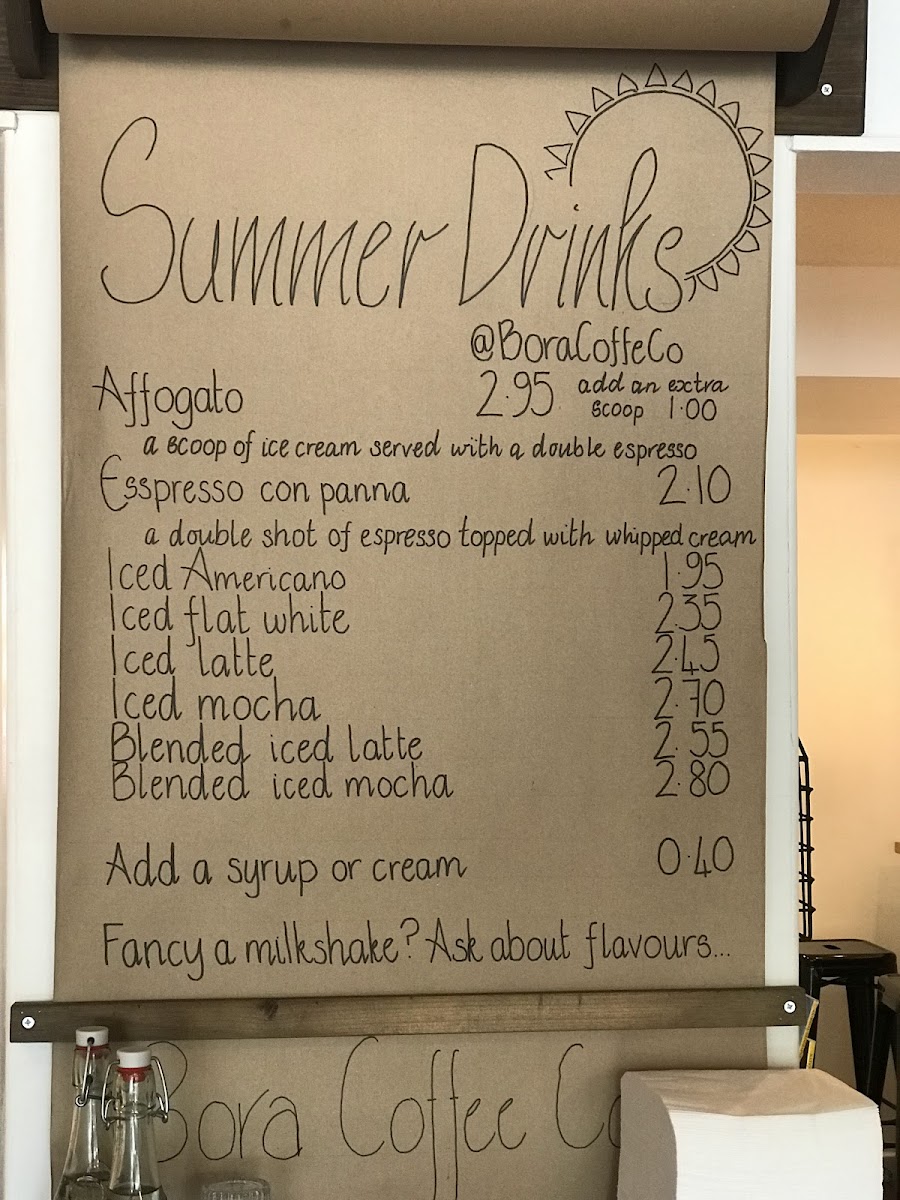 Summer Drinks
@BoraCoffeCo
Affogato 2.95 add an extra
scoop 1.00
a scoop of ice cream served with a double espresso
Esspresso con panna 2.10
a double shot of espresso topped with whipped cream
Iced Americano 1.95
Iced flat white 2.35
Iced latte 2.45
Iced mocha 2.70
Blended iced latte 2.55
Blended iced mocha 2.80
Add a syrup or cream 0.40
Fancy a milkshake? Ask about flavours...
Bora Coffee Co